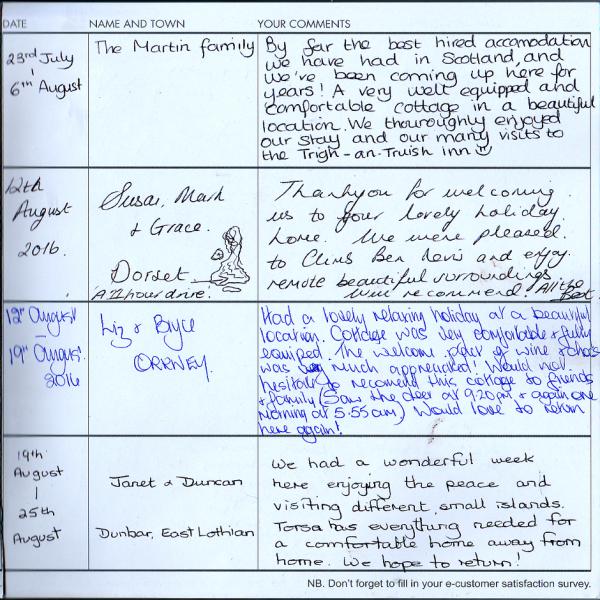 DATE NAME AND TOWN YOUR COMMENTS
23rd July
-
6th August
The Martin family
By far the best hired accomodation
we have had in Scotland, and
we've been coming up here for
years! A very well equipped and
comfortable cottage in a beautiful
location. We thouroughly enjoyed
our stay and our many visits to
the Trigh-an-Truish inn
12th
August
2016.
Susan, Mark
& Grace.
Dorset
'A 11 hour drive!'
Thankyou for welcoming
us to your lovely holiday
home. We were pleased
to Climb Ben Nevis and enjoy
remote beautiful surroundings
Will recommend! All the
Best
12th August
-
19th August
2016
Liz & Bryce
ORKNEY.
Had a lovely relaxing holiday at a beautiful
location. Cottage was very comfortable & fully
equiped. The welcome pack of wine & chocs
was very much appreciated! Would not
hesitate to recomend this cottage to friends
& family (Saw the deer at 9:20pm & again one
morning at 5:55am) Would love to return
here again!
19th
August
|
25th
August
Janet & Duncan
Dunbar, East Lothian
We had a wonderful week
here enjoying the peace and
visiting different small islands.
Torsa has everything needed for
a comfortable home away from
home. We hope to return!
NB. Don't forget to fill in your e-customer satisfaction survey.